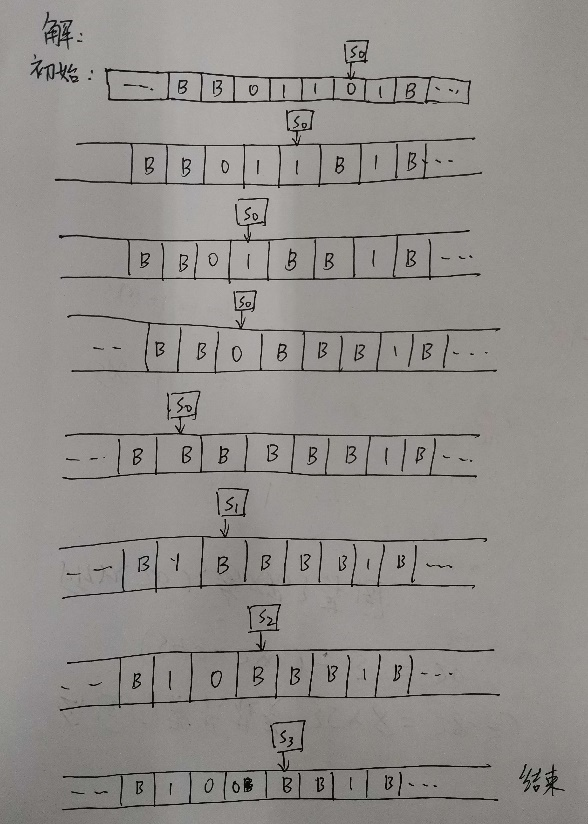 解:
初始:
S0
-- B B 0 1 1 0 1 B ...
S0
B B 0 1 1 B 1 B ...
S0
B B 0 1 B B 1 B ...
S0
-- B B 0 B B B 1 B ...
S0
--- B B B B B B 1 B ---
S1
-- B 1 B B B B 1 B ---
S2
-- B 1 0 B B B 1 B ...
S3
-- B 1 0 0 B B 1 B ... 结束